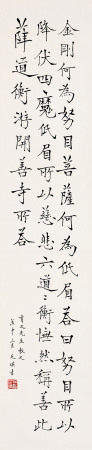 金剛何為努目菩薩何為低眉荅曰努目所以
降伏四魔低眉所以慈悲六道〻衡憮然稱善此
薛道衡游開善寺所荅